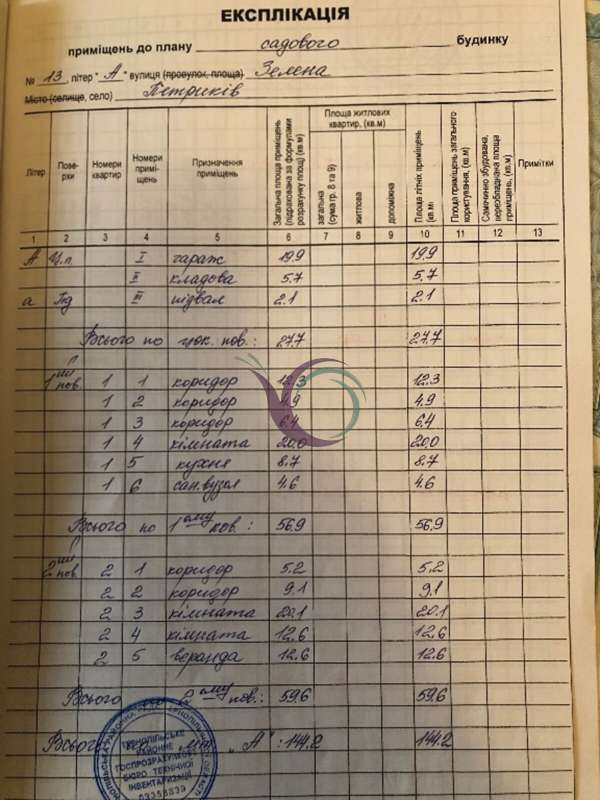 ЕКСПЛІКАЦІЯ
приміщень до плану садового будинку
№ 13 літер "А" вулиця (провулок, площа) Зелена
Місто (селище, село) Петриків
Літер
Поверхи
Номери квартир
Номери приміщень
Призначення приміщень
Загальна площа приміщень (підрахована за формулами розрахунку площ) (кв.м)
Площа житлових квартир, (кв.м)
загальна (сума гр. 8 та 9)
житлова
допоміжна
Площа літніх приміщень (кв.м)
Площа приміщень загального користування, (кв.м)
Самочинно збудована, переобладнана площа приміщень, (кв.м)
Примітки
1 2 3 4 5 6 7 8 9 10 11 12 13
А Ц.п. I гараж 19.9 19.9
II кладова 5.7 5.7
а Пд III підвал 2.1 2.1
Всього по цок. пов.: 27.7 27.7
1ий пов. 1 1 коридор 12.3 12.3
1 2 коридор 4.9 4.9
1 3 коридор 6.4 6.4
1 4 кімната 20.0 20.0
1 5 кухня 8.7 8.7
1 6 сан.вузол 4.6 4.6
Всього по 1ому пов.: 56.9 56.9
2ий пов. 2 1 коридор 5.2 5.2
2 2 коридор 9.1 9.1
2 3 кімната 20.1 20.1
2 4 кімната 12.6 12.6
2 5 веранда 12.6 12.6
Всього 2ому пов.: 59.6 59.6
Всього літ. "А": 144.2 144.2
ТЕРНОПІЛЬСЬКЕ
РАЙОННЕ
ГОСПРОЗРАХУНКОВЕ
БЮРО ТЕХНІЧНОЇ
ІНВЕНТАРИЗАЦІЇ
03358839